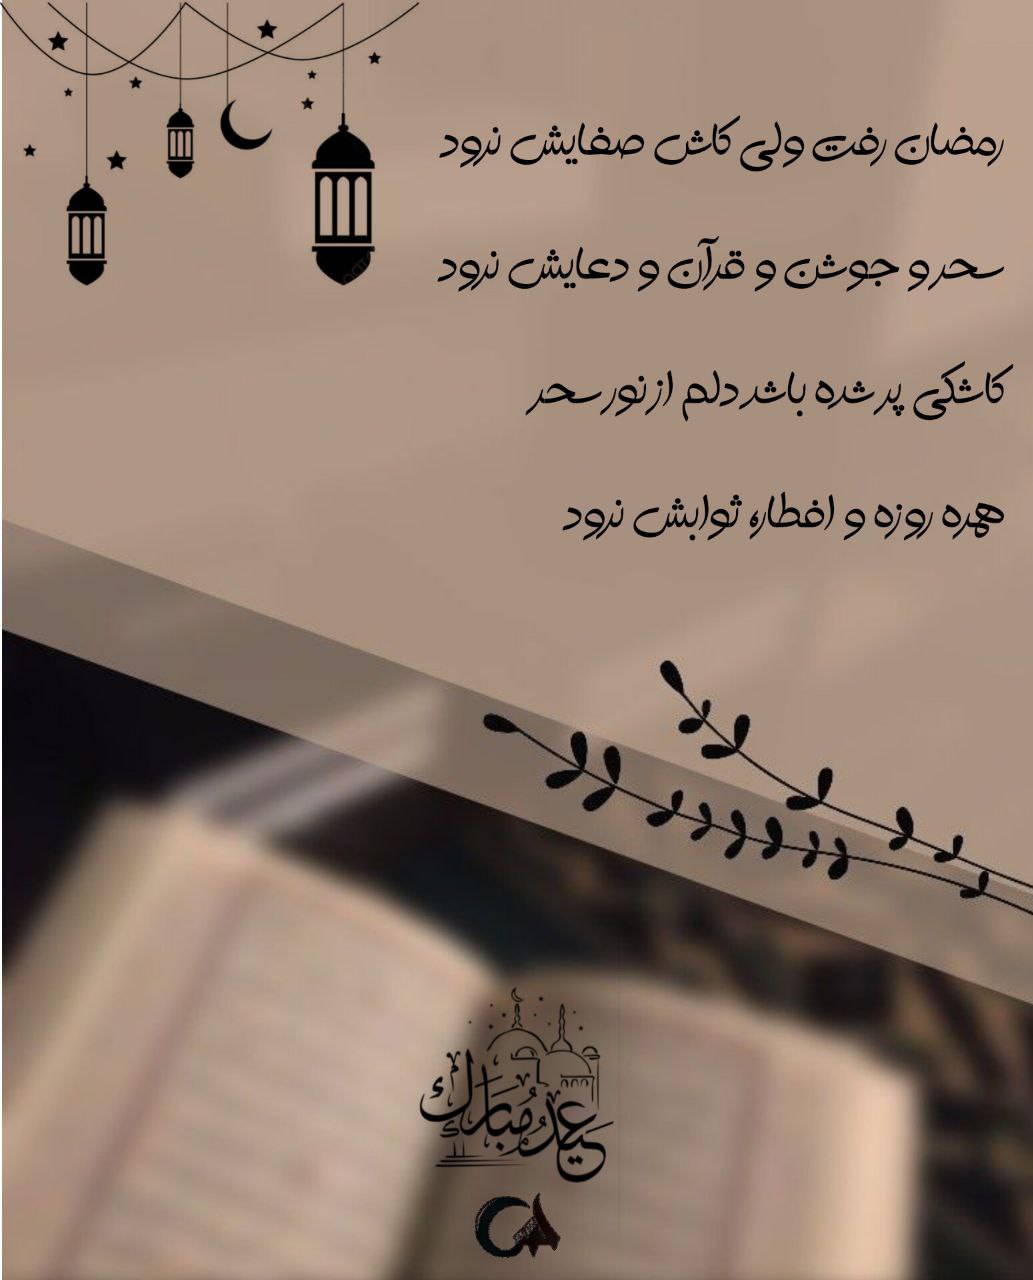 رمضان رفت ولی کاش صفایش نرود
سحر و جوشن و قرآن و دعایش نرود
کاشکی پر شده باشد دلم از نور سحر
همره روزه و افطار، ثوابش نرود
عيد مبارك